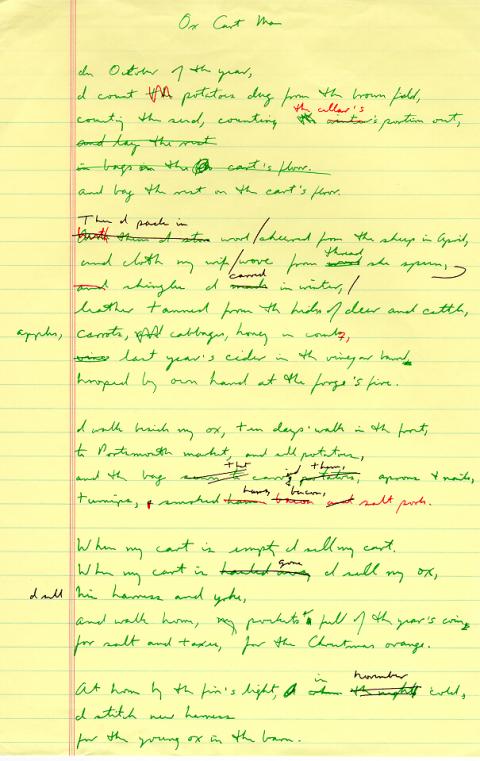 Ox Cart Man
In October of the year,
I count potatoes dug from the brown field,
the cellar's
counting the seed, counting winter's portion out,
and lay the rest
in bags on the cart's floor.
and bag the rest on the cart's floor.
Then I pack in
them I wool / sheared from the sheep in April,
thread
and cloth my wife / wove from she spun,
carved
and shingles I made in winter, /
leather tanned from the hides of deer and cattle,
apples, carrots, cabbages, honey in combs,
last year's cider in the vinegar barrel
hooped by own hand at the forge's fire.
I walk beside my ox, ten days' walk in the frost,
to Portsmouth market, and sell potatoes,
that them,
and the bag carried potatoes, aprons & nails,
hams, bacon,
turnips, & smoked ham bacon and salt pork.
When my cart is empty I sell my cart.
gone
When my cart is I sell my ox,
I sell his harness and yoke,
and walk home, my pockets full of the year's coins
for salt and taxes, for the Christmas orange.
in November
At home by the fire's light, when the night cold,
I stitch new harness
for the young ox in the barn.